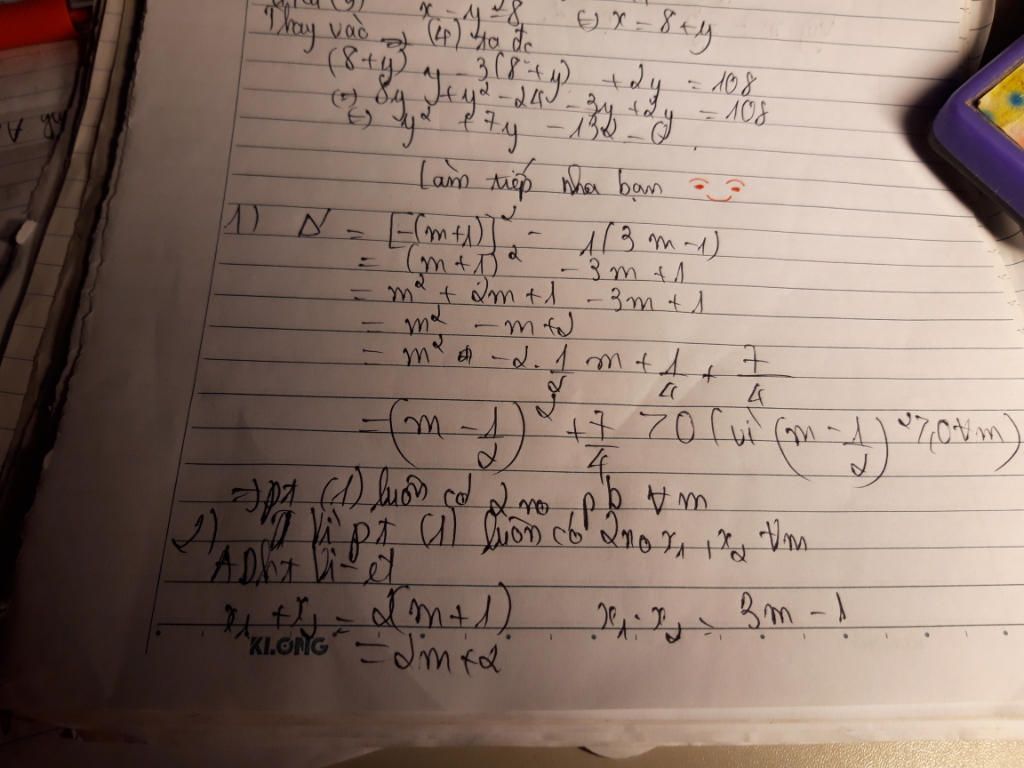 x - y = 8 ⇔ x = 8 + y
Thay vào ⇒ (4) ta đc
(8+y) y - 3(8+y) + 2y = 108
⇔ 8y + y² - 24 - 3y + 2y = 108
⇔ y² + 7y - 132 = 0
Làm tiếp nha bạn
1) Δ' = [-(m+1)]² - 1(3m-1)
= (m+1)² - 3m + 1
= m² + 2m + 1 - 3m + 1
= m² - m + 2
= m² - 2. 1/2 m + 1/4 + 7/4
= (m - 1/2)² + 7/4 > 0 (vì (m - 1/2)² ≥ 0 ∀m)
⇒ pt (1) luôn có 2 no pb ∀m
2) Vì pt (1) luôn có 2 no x₁, x₂ ∀m
ADht Vi-et
x₁ + x₂ = 2(m+1) x₁ . x₂ = 3m - 1
KLONG = 2m + 2